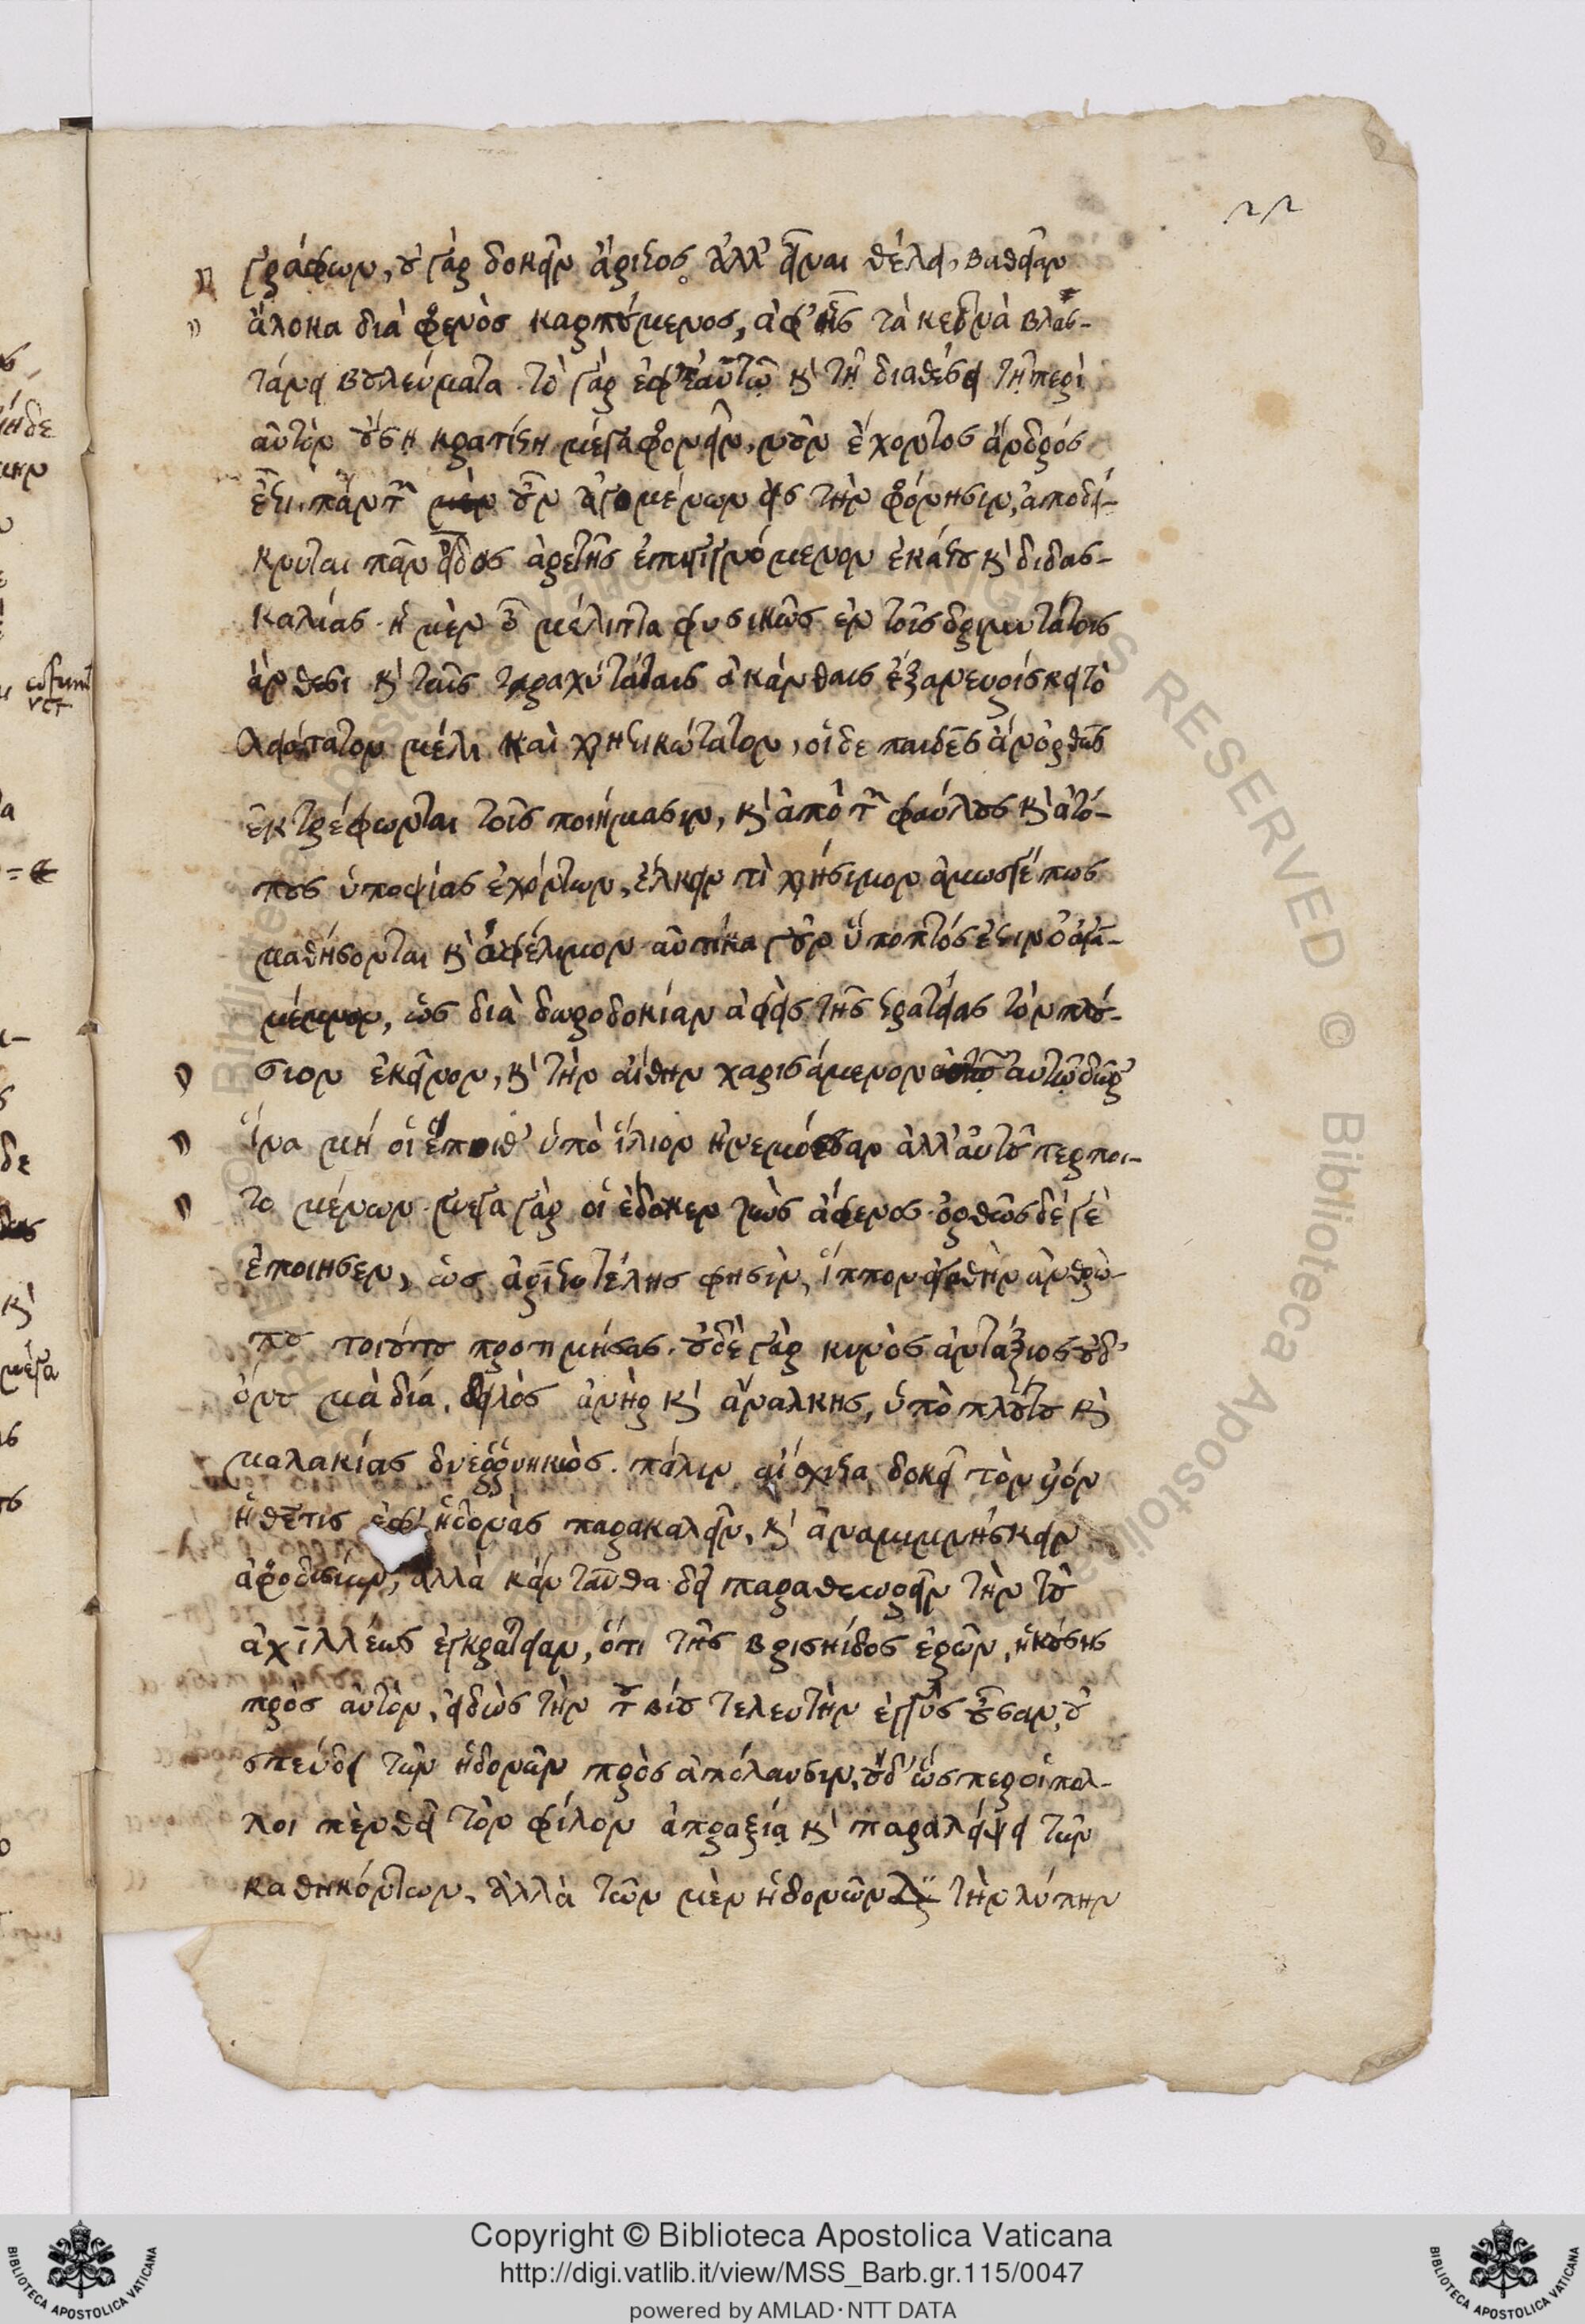 γράφων, οὐ γὰρ δοκεῖν ἄριστος ἀλλ' εἶναι θέλει, βαθεῖαν
ἄλοκα διὰ φρενὸς καρπούμενος, ἀφ' ἧς τὰ κεδνὰ βλας-
τάνει βουλεύματα. τὸ γὰρ ἐφ' ἑαυτῷ κ τῇ διαθέσει τῇ περὶ
αὐτὸν οὔσῃ κρατίστῃ μέγα φρονεῖν, νοῦν ἔχοντος ἀνδρός
ἐστι. πάντων οὖν ἀγομένων εἰς τὴν φρόνησιν, ἀποδεί-
κνυται πᾶν εἶδος ἀρετῆς ἐπιγιγνόμενον ἐκ λόγου κ διδασ-
καλίας. ἡ μὲν οὖν μέλιττα φυσικῶς ἐν τοῖς δριμυτάτοις
ἄνθεσι κ ταῖς τραχυτάταις ἀκάνθαις ἐξανευρίσκει τὸ
λειότατον μέλι καὶ χρηστικώτατον, οἱ δε παιδες ἂν ὀρθῶς
ἐκτρέφωνται τοῖς ποιήμασιν, κ ἀπὸ τῶν φαύλους κ ἀτό-
πους ὑποψίας ἐχόντων, ἕλκειν τὶ χρήσιμον ἁμωσγέπως
μαθήσονται κ ὠφέλιμον. αὐτίκα γοῦν ὕποπτός ἐστιν ὁ ἀγα-
μέμνων, ὡς διὰ δωροδοκίαν ἀφεὶς τῆς στρατείας τὸν πλού-
σιον ἐκεῖνον, κ τὴν αἴθην χαρισάμενον αὐτῷ δῶρ'
ἵνα μή οἱ ἕποιθ' ὑπὸ ἴλιον ἠνεμόεσσαν ἀλλ' αὐτοῦ τερποι-
το μένων. μεγα γάρ οἱ ἔδωκεν ζεὺς ἄφενος. ὀρθῶς δέ γε
ἐποιησεν, ὡς ἀριστοτέλης φησὶν, ἵππον ἀγαθὴν ἀνθρώ-
που τοιούτου προτιμήσας. οὐδὲ γὰρ κυνὸς ἀντάξιος οὐδ'
ὄνου μὰ δία, δειλὸς ἀνὴρ κ ἄναλκης, ὑπὸ πλούτου κ
μαλακίας διερρυηκώς. πάλιν αἴσχιστα δοκεῖ τὸν υἱόν
ἡ θέτις ἐφ' ἡδονὰς παρακαλεῖν, κ ἀναμιμνήσκειν
ἀφροδισίων, ἀλλὰ κἀνταῦθα δεῖ παραθεωρεῖν τὴν τοῦ
ἀχιλλέως ἐγκράτειαν, ὅτι τῆς βρισηίδος ἐρῶν, ἡκούσης
πρὸς αὐτὸν, εἰδὼς τὴν τοῦ βίου τελευτὴν ἐγγὺς οὖσαν, οὐ
σπεύδει τῶν ἡδονῶν πρὸς ἀπόλαυσιν, οὐδ' ὥσπερ οἱ πολ-
λοι πενθεῖ τὸν φίλον ἀπραξίᾳ κ παραλείψει τῶν
καθηκόντων, ἀλλὰ τῶν μὲν ἡδονῶν τὴν λύπην
Copyright © Biblioteca Apostolica Vaticana
http://digi.vatlib.it/view/MSS_Barb.gr.115/0047
powered by AMLAD·NTT DATA